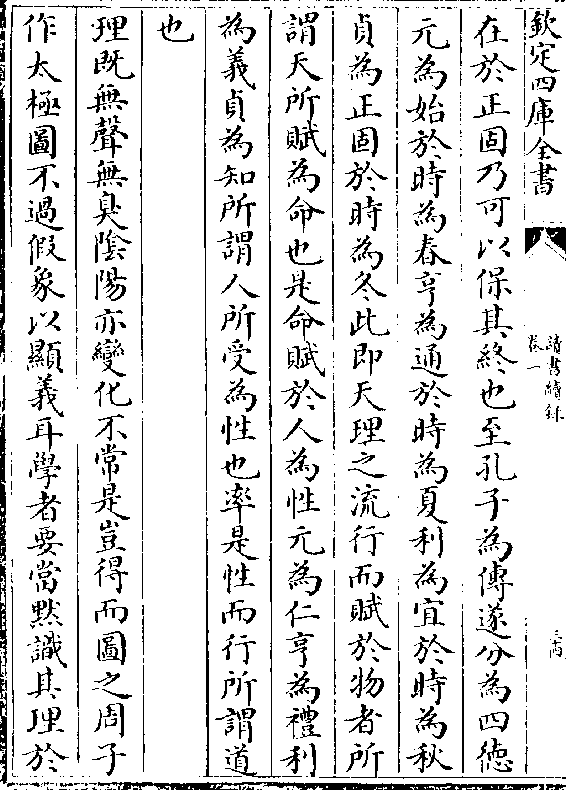 欽定四庫全書
讀書續錄
卷一
在於正固乃可以保其終也至孔子為傳遂分為四德
元為始於時為春亨為通於時為夏利為宜於時為秋
貞為正固於時為冬此即天理之流行而賦於物者所
謂天所賦為命也是命賦於人為性元為仁亨為禮利
為義貞為知所謂人所受為性也率是性而行所謂道
也
理既無聲無臭陰陽亦變化不常是豈得而圖之周子
作太極圖不過假象以顯義耳學者要當默識其理於